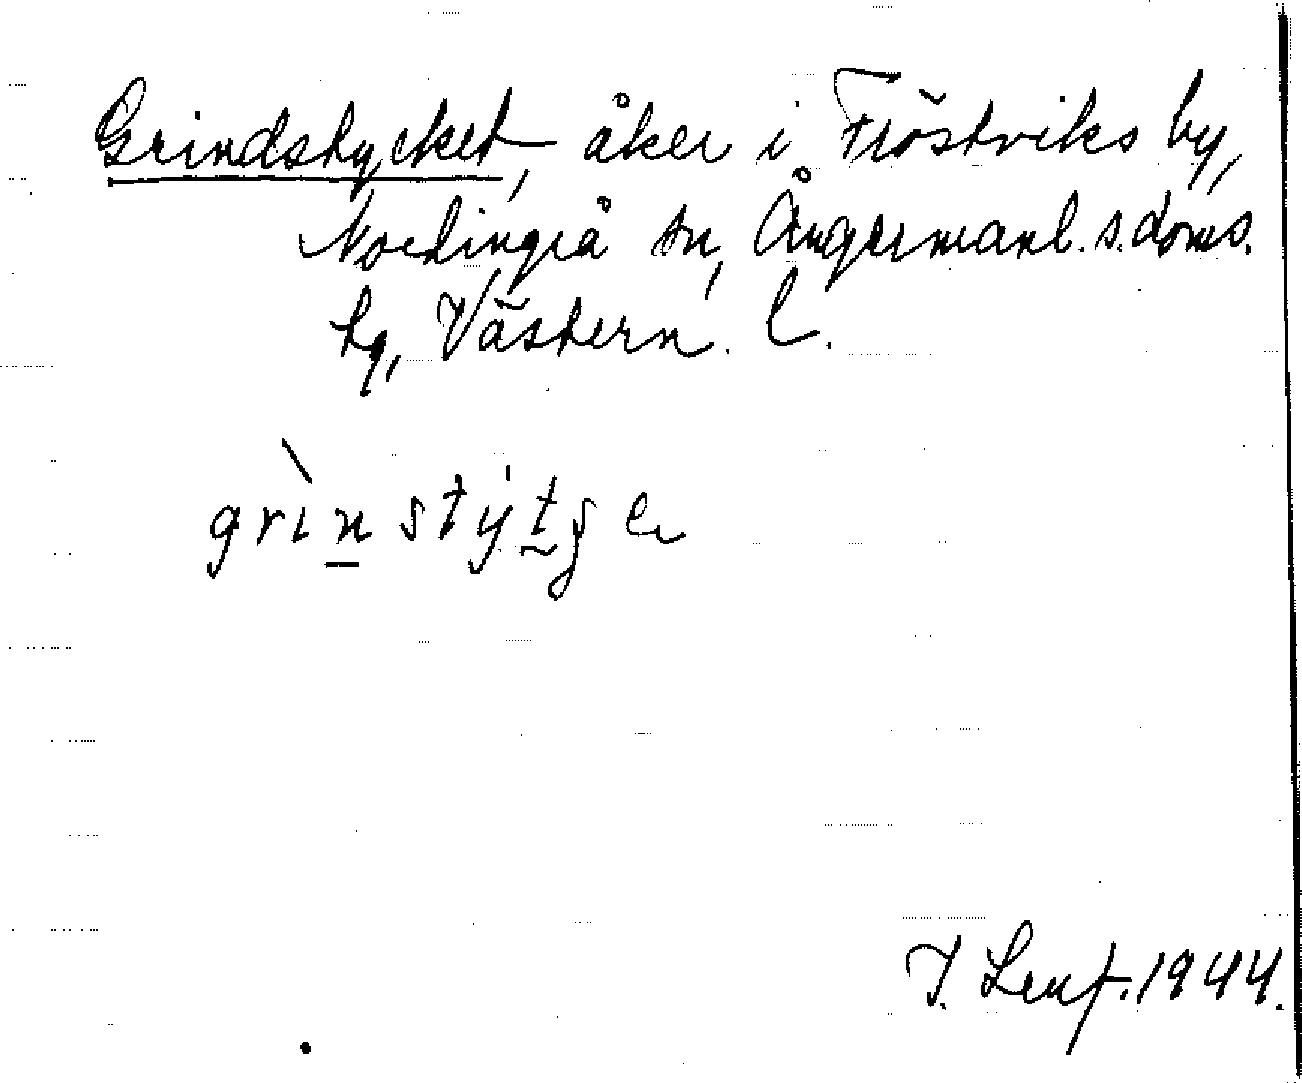 Grindstycket, åker i Fröstviks by,
Nordingrå sn, Ångermanl. s. doms.
hg, Västern. l.
grìn stýtge
J. Leuf. 1944.